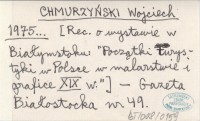 CHMURZYŃSKI Wojciech
1975... [Rec. o wystawie w
Białymstoku "Początki turys-
tyki w Polsce w malarstwie i
grafice XIX w."] – Gazeta
Białostocka nr 49.